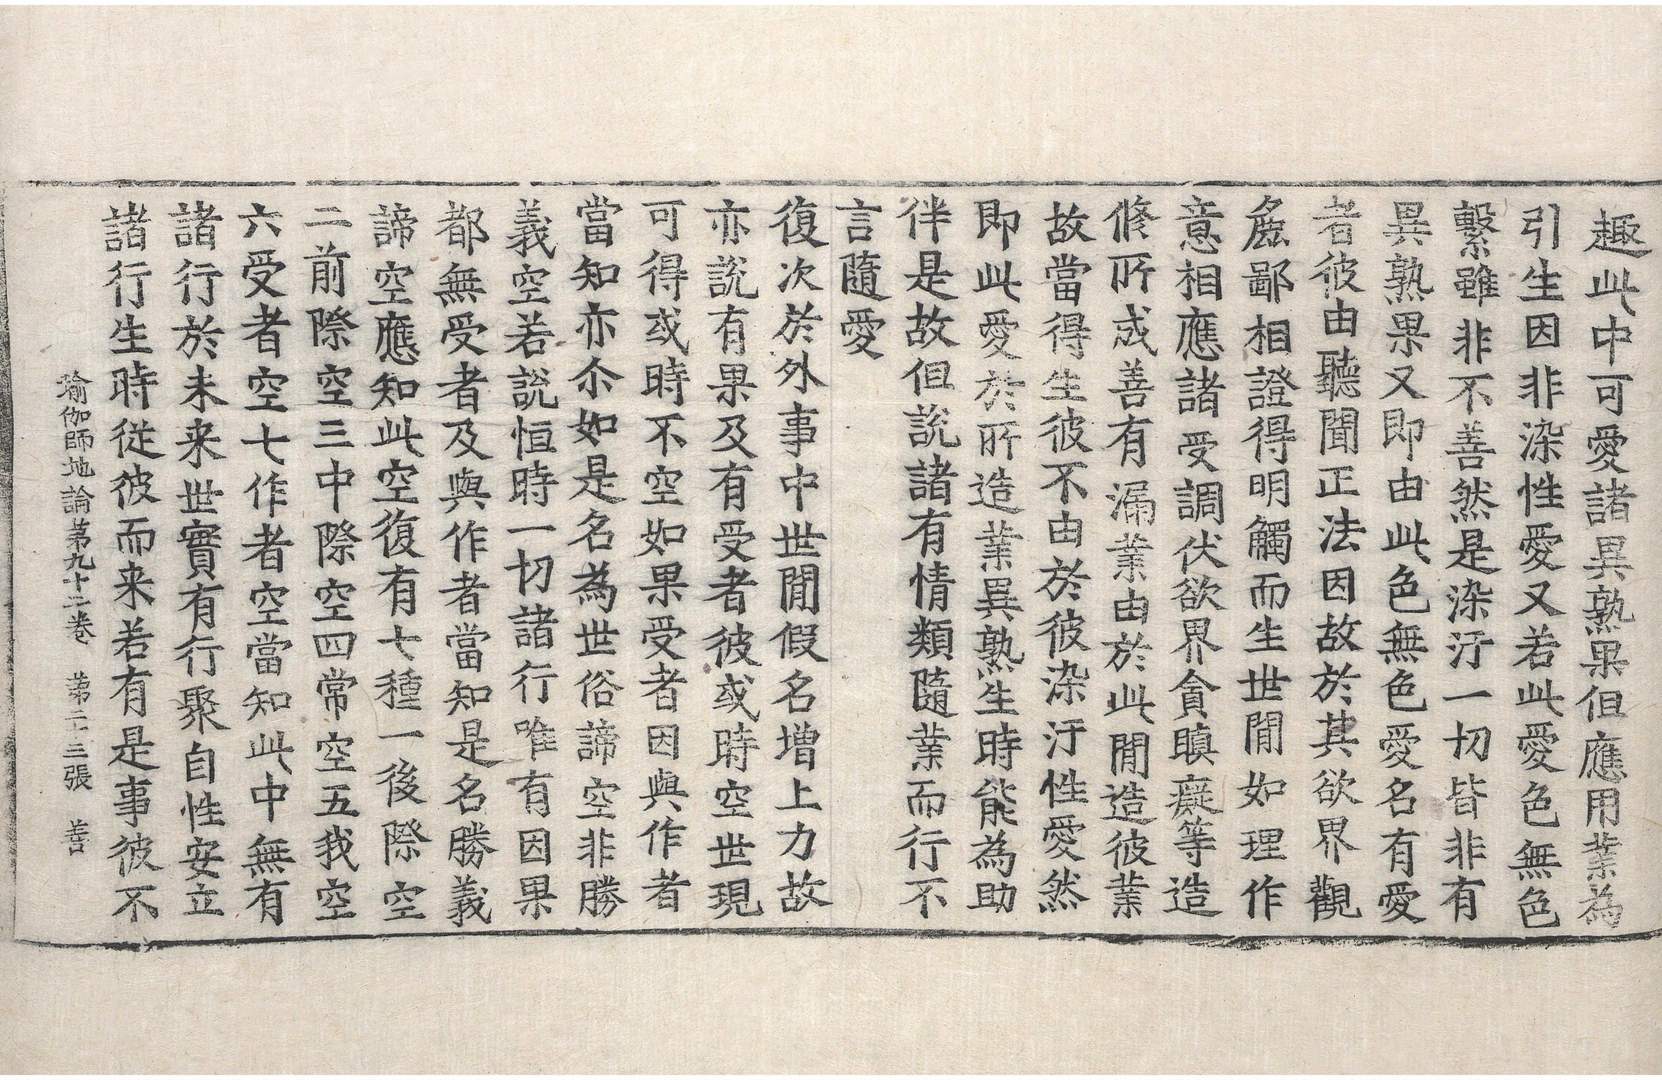 趣此中可愛諸異熟果但應用業為
引生因非染性愛又若此愛色無色
繫雖非不善然是染汙一切皆非有
異熟果又即由此色無色愛名有愛
者彼由聽聞正法因故於其欲界觀
麁鄙相證得明觸而生世間如理作
意相應諸受調伏欲界貪瞋癡等造
脩所成善有漏業由於此間造彼業
故當得生彼不由於彼染汙性愛然
即此愛於所造業異熟生時能為助
伴是故但說諸有情類隨業而行不
言隨愛
復次於外事中世間假名增上力故
亦說有果及有受者彼或時空世現
可得或時不空如果受者因與作者
當知亦尒如是名為世俗諦空非勝
義空若說恒時一切諸行唯有因果
都無受者及與作者當知是名勝義
諦空應知此空復有七種一後際空
二前際空三中際空四常空五我空
六受者空七作者空當知此中無有
諸行於未来世實有行聚自性安立
諸行生時從彼而来若有是事彼不
瑜伽師地論第九十二卷 第二十三張 善